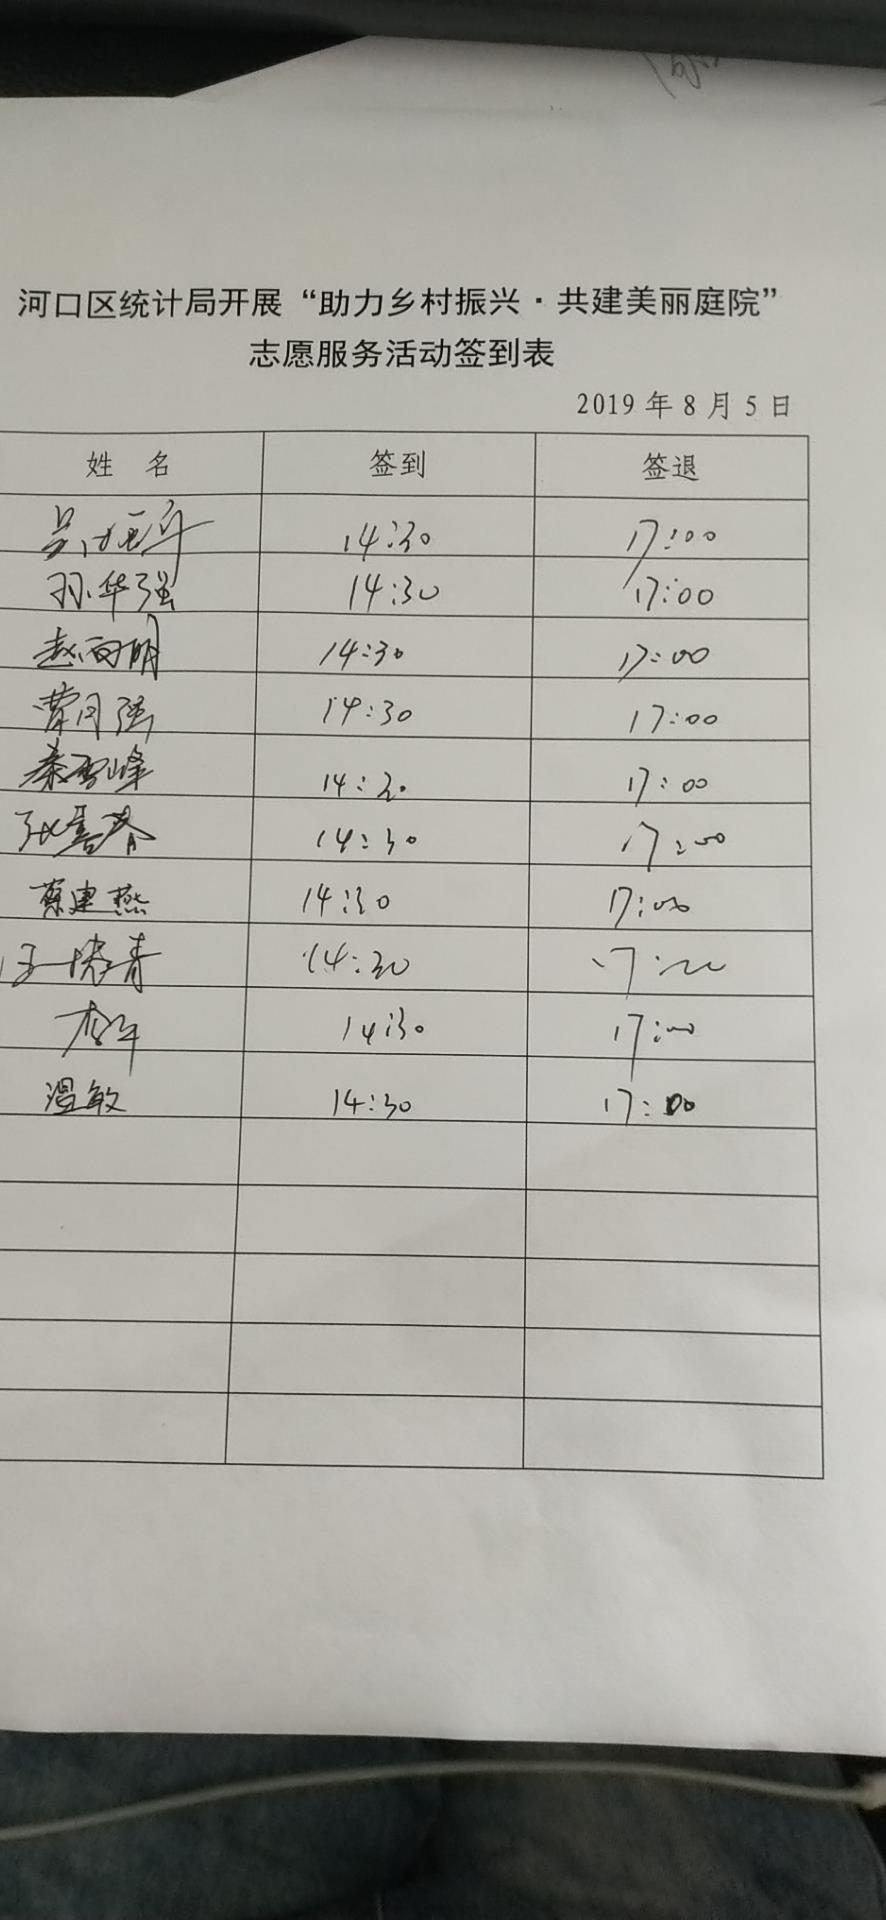 河口区统计局开展“助力乡村振兴·共建美丽庭院”
志愿服务活动签到表
2019年8月5日
姓 名 签到 签退
14:30 17:00
孙华强 14:30 17:00
赵向明 14:30 17:00
曹月强 14:30 17:00
秦雪峰 14:30 17:00
张喜春 14:30 17:00
蔡建燕 14:30 17:00
王晓青 14:30 17:00
14:30 17:00
温敏 14:30 17:00